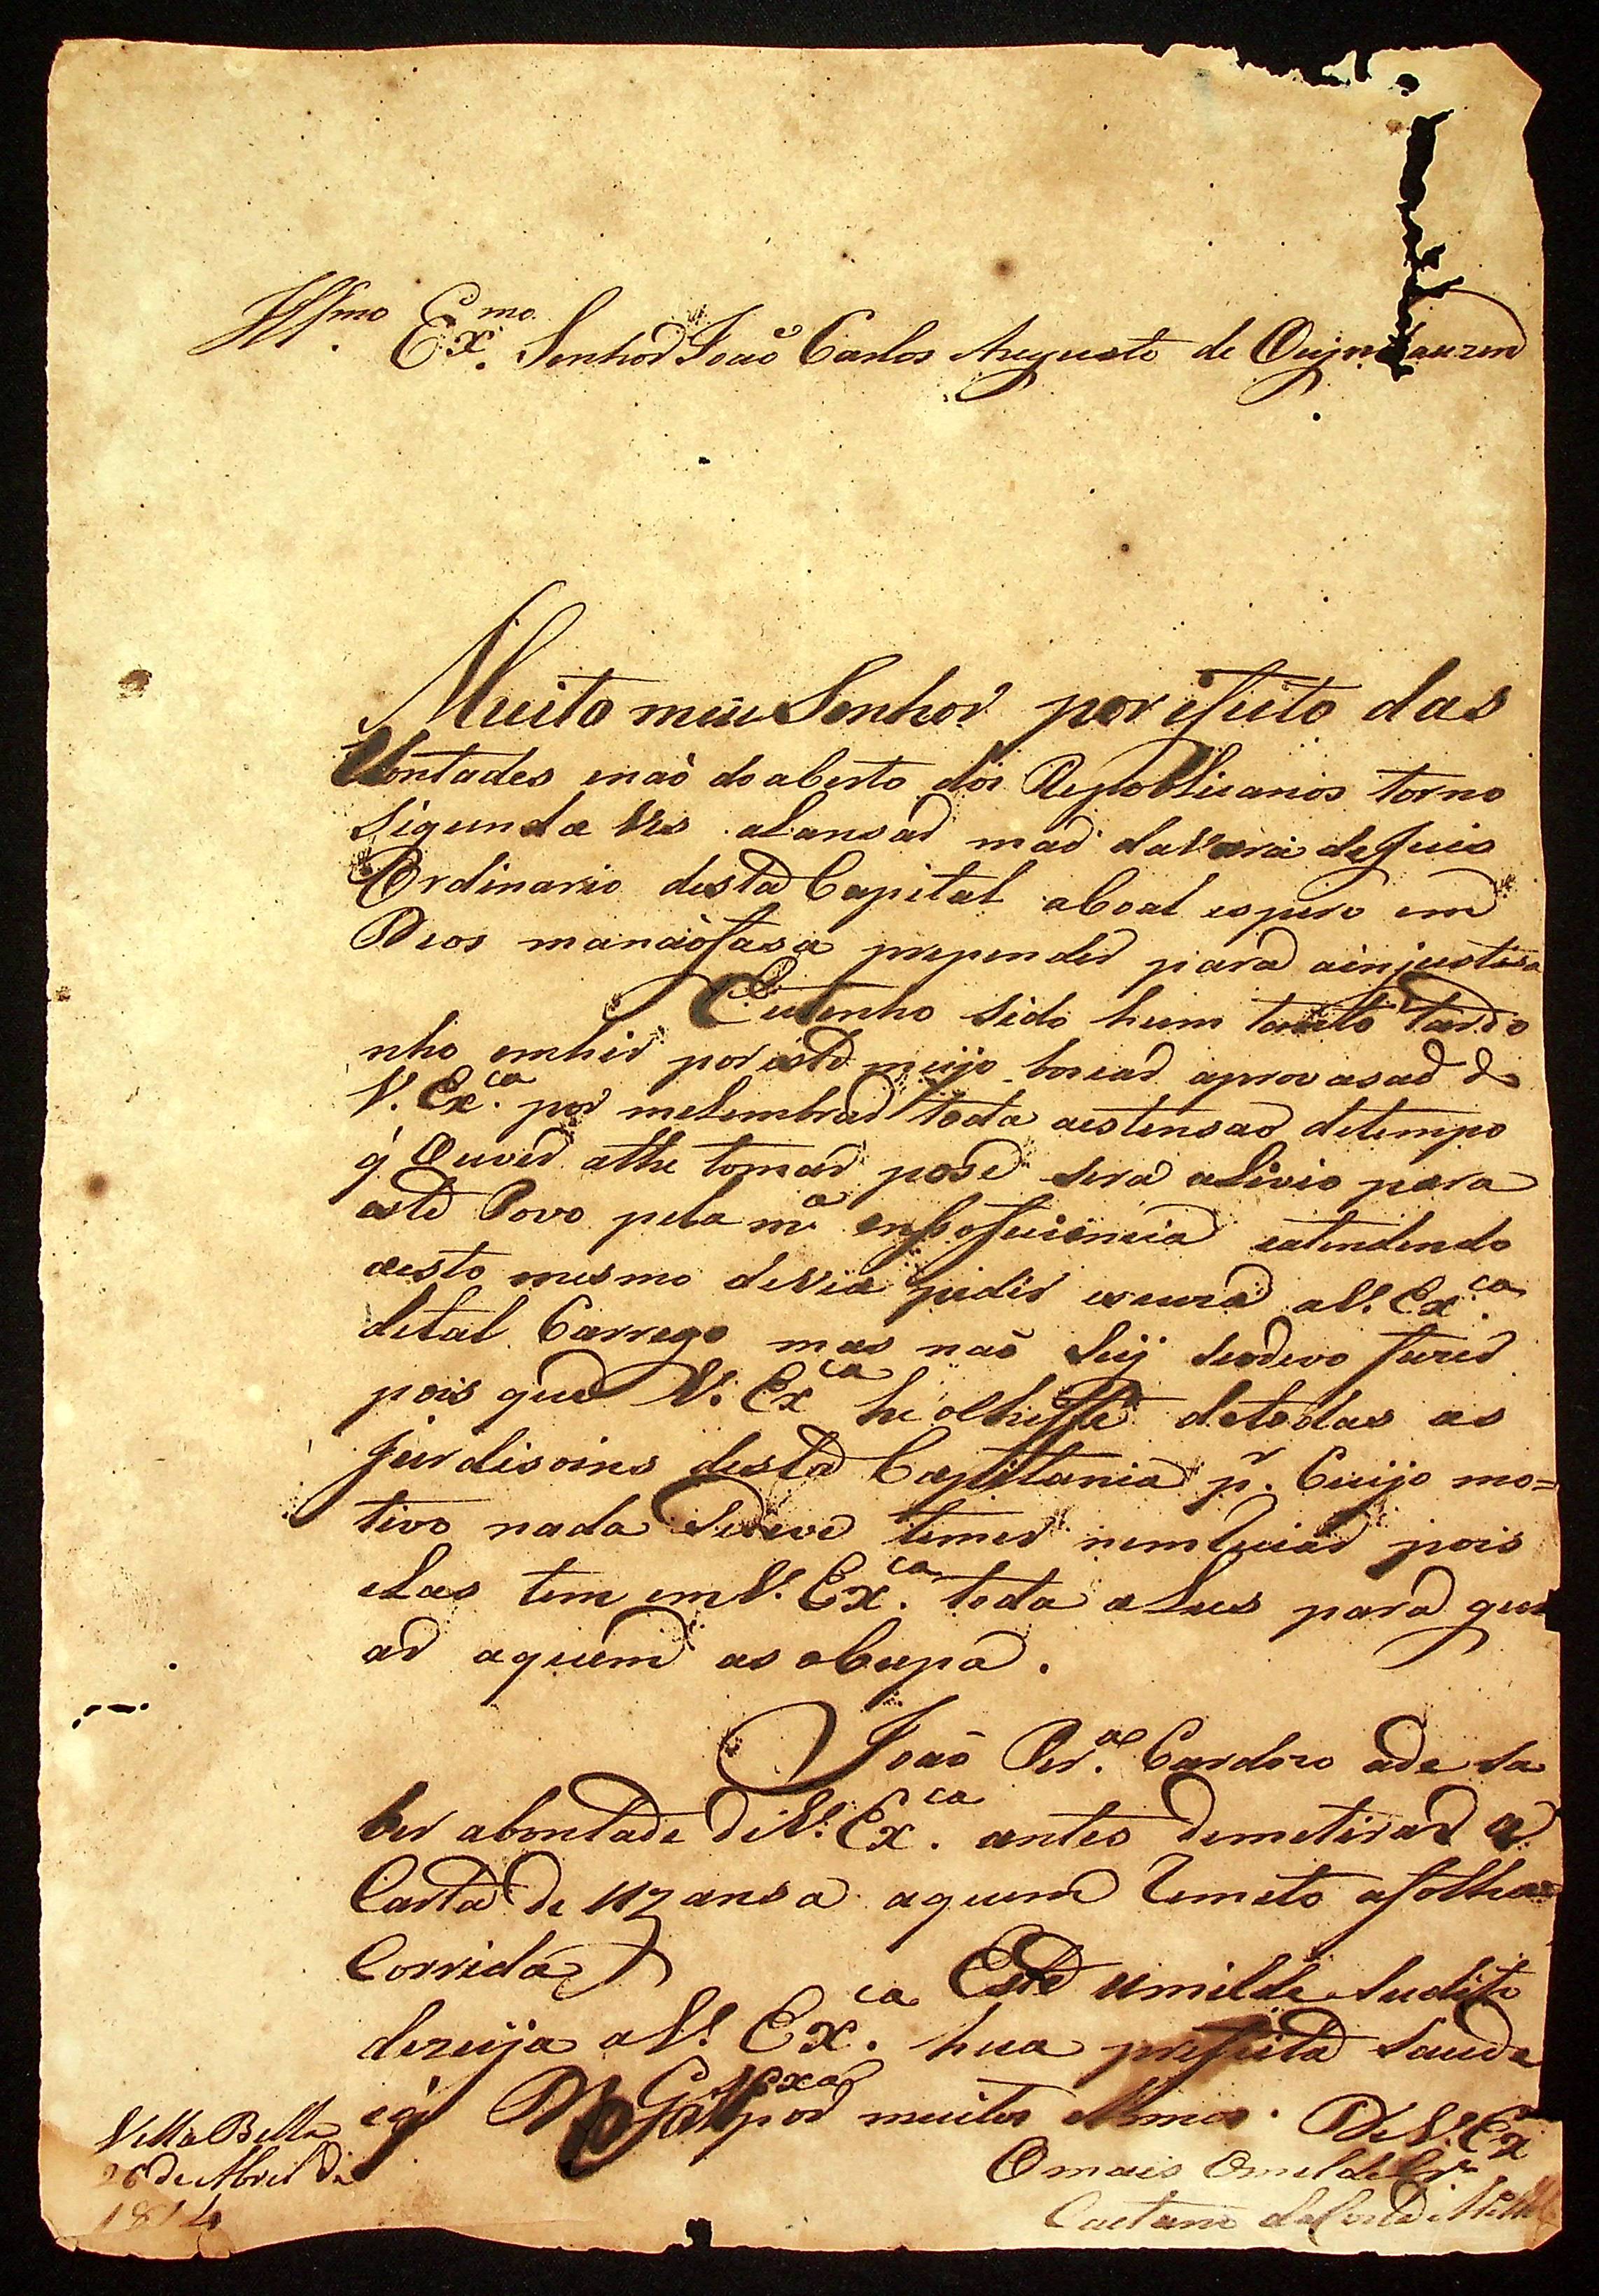 Illmo. Exmo. Senhor João Carlos Augusto de Oeyn auzen
Muito meu Senhor por ifeito das
Vontades enaõ do aberto dos Repoblicanos torno
Sigunda Ves alansar maõ daVara de Juis
Ordinario desta Capital aboal espero em
Deos manaõ fasa prepender para ainjustisa
Eu tenho sido hum tanto tardo
nho emhir por este meijo buscar aprovasaõ de
V. Exca. por melembrar toda aestensaõ detempo
q' Ouver athe tomar pose sera alivio para
este Povo pela ma. ensoficiencia eatendendo
aesto mesmo devia pedir escuza aV. Exca.
detal Carrego mas naõ Seij seodevo fazer
pois que V. Exca he oChefe detodas as
jurdisoins desta Capitania pr. Cuijo mo=
tivo nada sedeve temer nem reciar pois
elas tem emV. Exca. toda aLus para gui
ar aquem as obupa.
João Pera. Cardozo ade sa
ber abontade deV. Exca. antes demetirar a
Carta de Uzansa aquem remeto afolha
Corrida
Este umilde Sudito
dezeija aV. Exca. hua prefeita Saude
eq' D G. VExa por muitos Annos. DeV. Exa
Omais Omelde Cro
Caetano daCosta
Villa Bella
26 de Abril de
1814